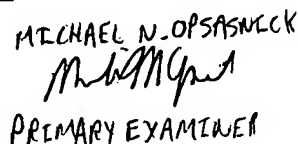 MICHAEL N. OPSASNICK
PRIMARY EXAMINER